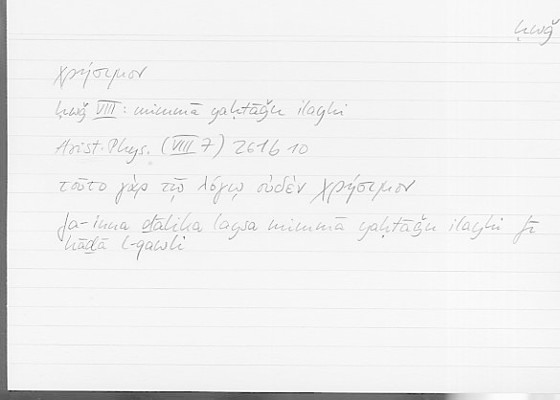 ḥwǧ
χρήσιμον
ḥwǧ VIII : mimmā yaḥtāǧu ilayhi
Arist. Phys. (VIII 7) 261b 10
τοῦτο γὰρ τῷ λόγῳ οὐδὲν χρήσιμον
fa-inna ḏālika laysa mimmā yaḥtāǧu ilayhi fī
hāḏā l-qawli